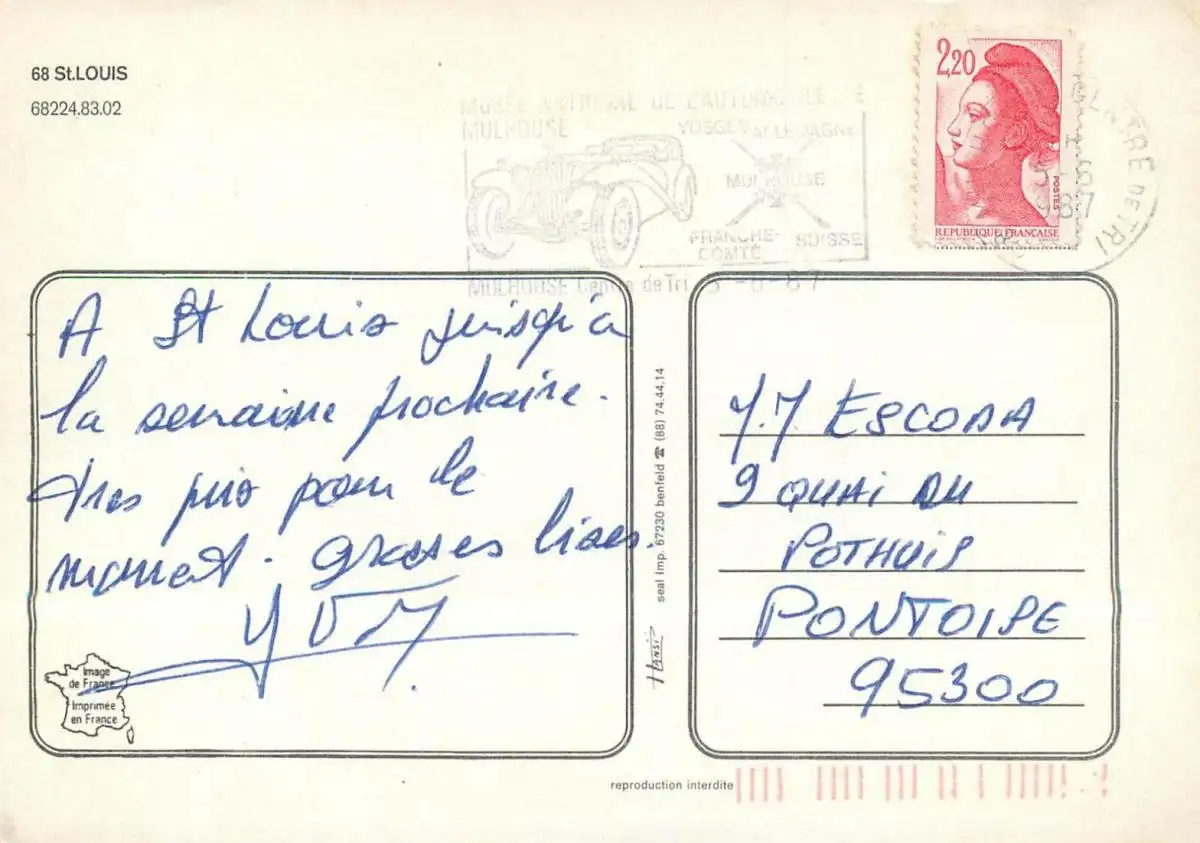 68 St.LOUIS
68224.83.02
MUSÉE NATIONAL DE L'AUTOMOBILE DE
MULHOUSE
VOSGES ALLEMAGNE
MULHOUSE
FRANCHE-
COMTÉ
SUISSE
MULHOUSE Centre de Tri 5-8-87
2,20
POSTES
REPUBLIQUE FRANÇAISE
CENTRE DE TRI
5-8
1987
A St Louis jusqu'a
la semaine prochaine.
tres pris pour le
moment. grosses bises.
Image
de France
Imprimée
en France
seal imp. 67230 benfeld ☎ (88) 74.44.14
HANSI
J.J ESCODA
9 QUAI DU
POTHUIS
PONTOISE
95300
reproduction interdite